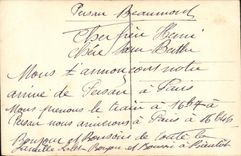 Persan Beaumont
Cher frère Henri
Chère Sœur Berthe
Nous t'annonçons notre
arrivé de Persan à Paris
Nous prenons le train à 16h4 à
Persan nous arriverons à Paris à 16h46
Bonjour et Bonsoirs de toute la
famille Bonjour et Bonsoir à Bientôt